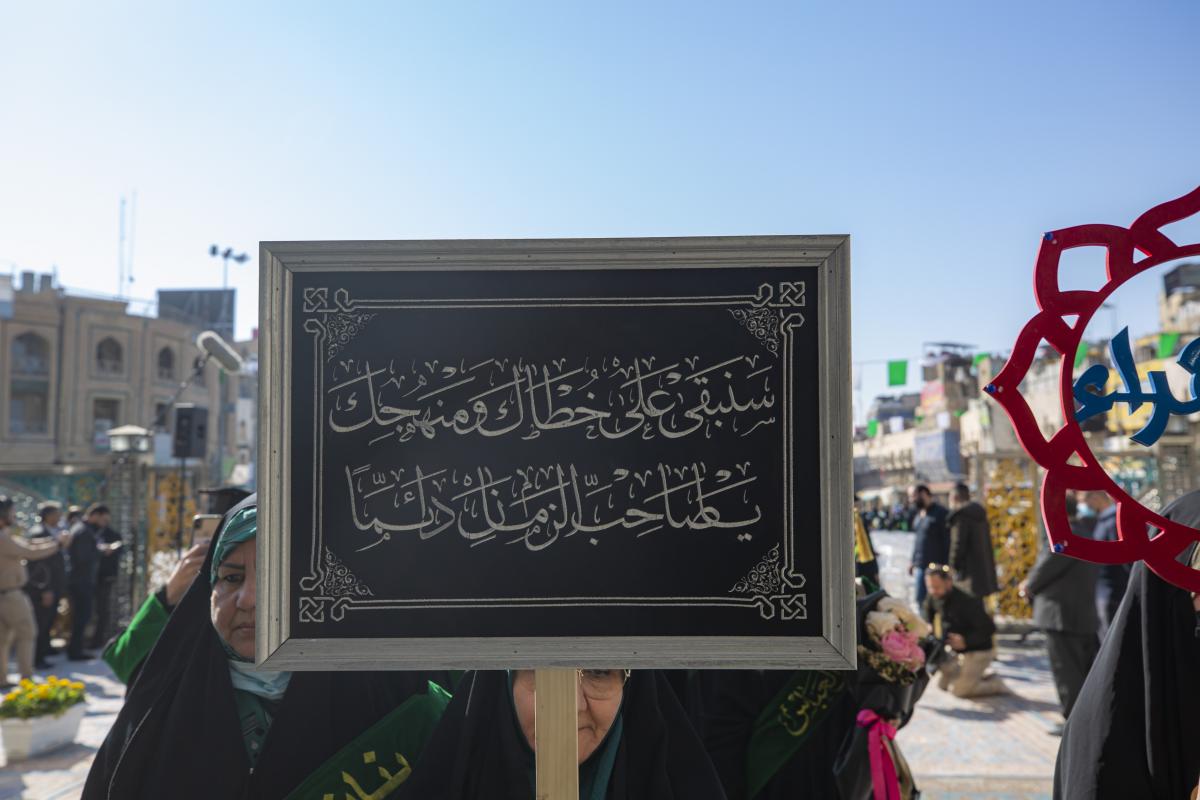 سَنَبْقَى عَلَى خُطَاكَ وَمَنْهَجِكَ
يَا صَاحِبَ الزَّمَانِ دَائِمًا